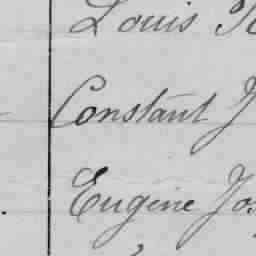 Louis
Constant J
Eugène Jos